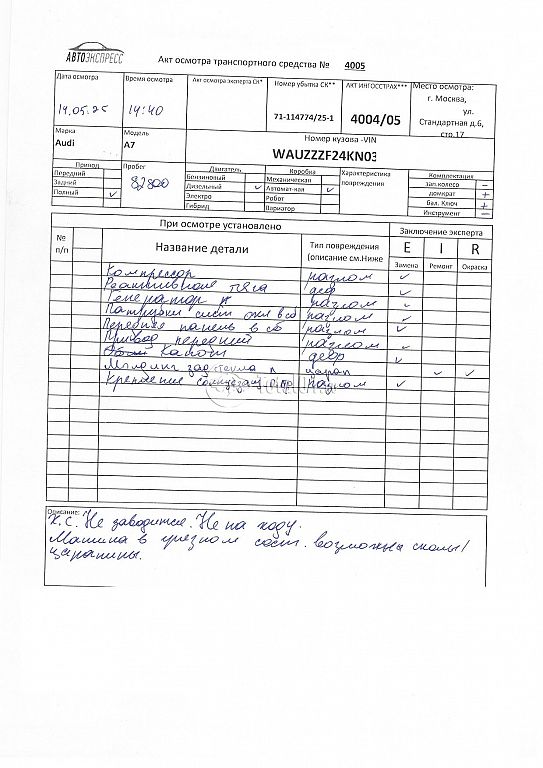 АВТОЭКСПРЕСС
Акт осмотра транспортного средства № 4005
Дата осмотра
Время осмотра
Акт осмотра эксперта СК*
Номер убытка СК**
АКТ ИНГОССТРАХ***
Место осмотра:
г. Москва,
ул.
Стандартная д.6,
стр.17
14.05.25
14:40
71-114774/25-1
4004/05
Марка
Модель
Номер кузова -VIN
Audi
A7
WAUZZZF24KN03
Привод
Пробег
Двигатель
Коробка
Характеристика
повреждения
Комплектация
Передний
Бензиновый
Механическая
зап.колесо –
Задний
82800
Дизельный ✓
Автомат-кая ✓
домкрат +
Полный ✓
Электро
Робот
бал. Ключ +
Гибрид
Вариатор
Инструмент –
При осмотре установлено
Заключение эксперта
№
п/п
Название детали
Тип повреждения
(описание см.Ниже
E I R
Замена Ремонт Окраска
Компрессор разлом ✓
Реактивная тяга деф ✓
Генератор разлом ✓
Патрубки сист охл в сб разлом ✓
Передняя панель в сб разлом ✓
Привод передний разлом ✓
Капот деф ✓
Молдинг зад стекла п царап ✓ ✓
Крепление разлом ✓
Описание:
К.С. Не заводится. Не на ходу.
Машина в грязном сост. возможны сколы/
царапины.